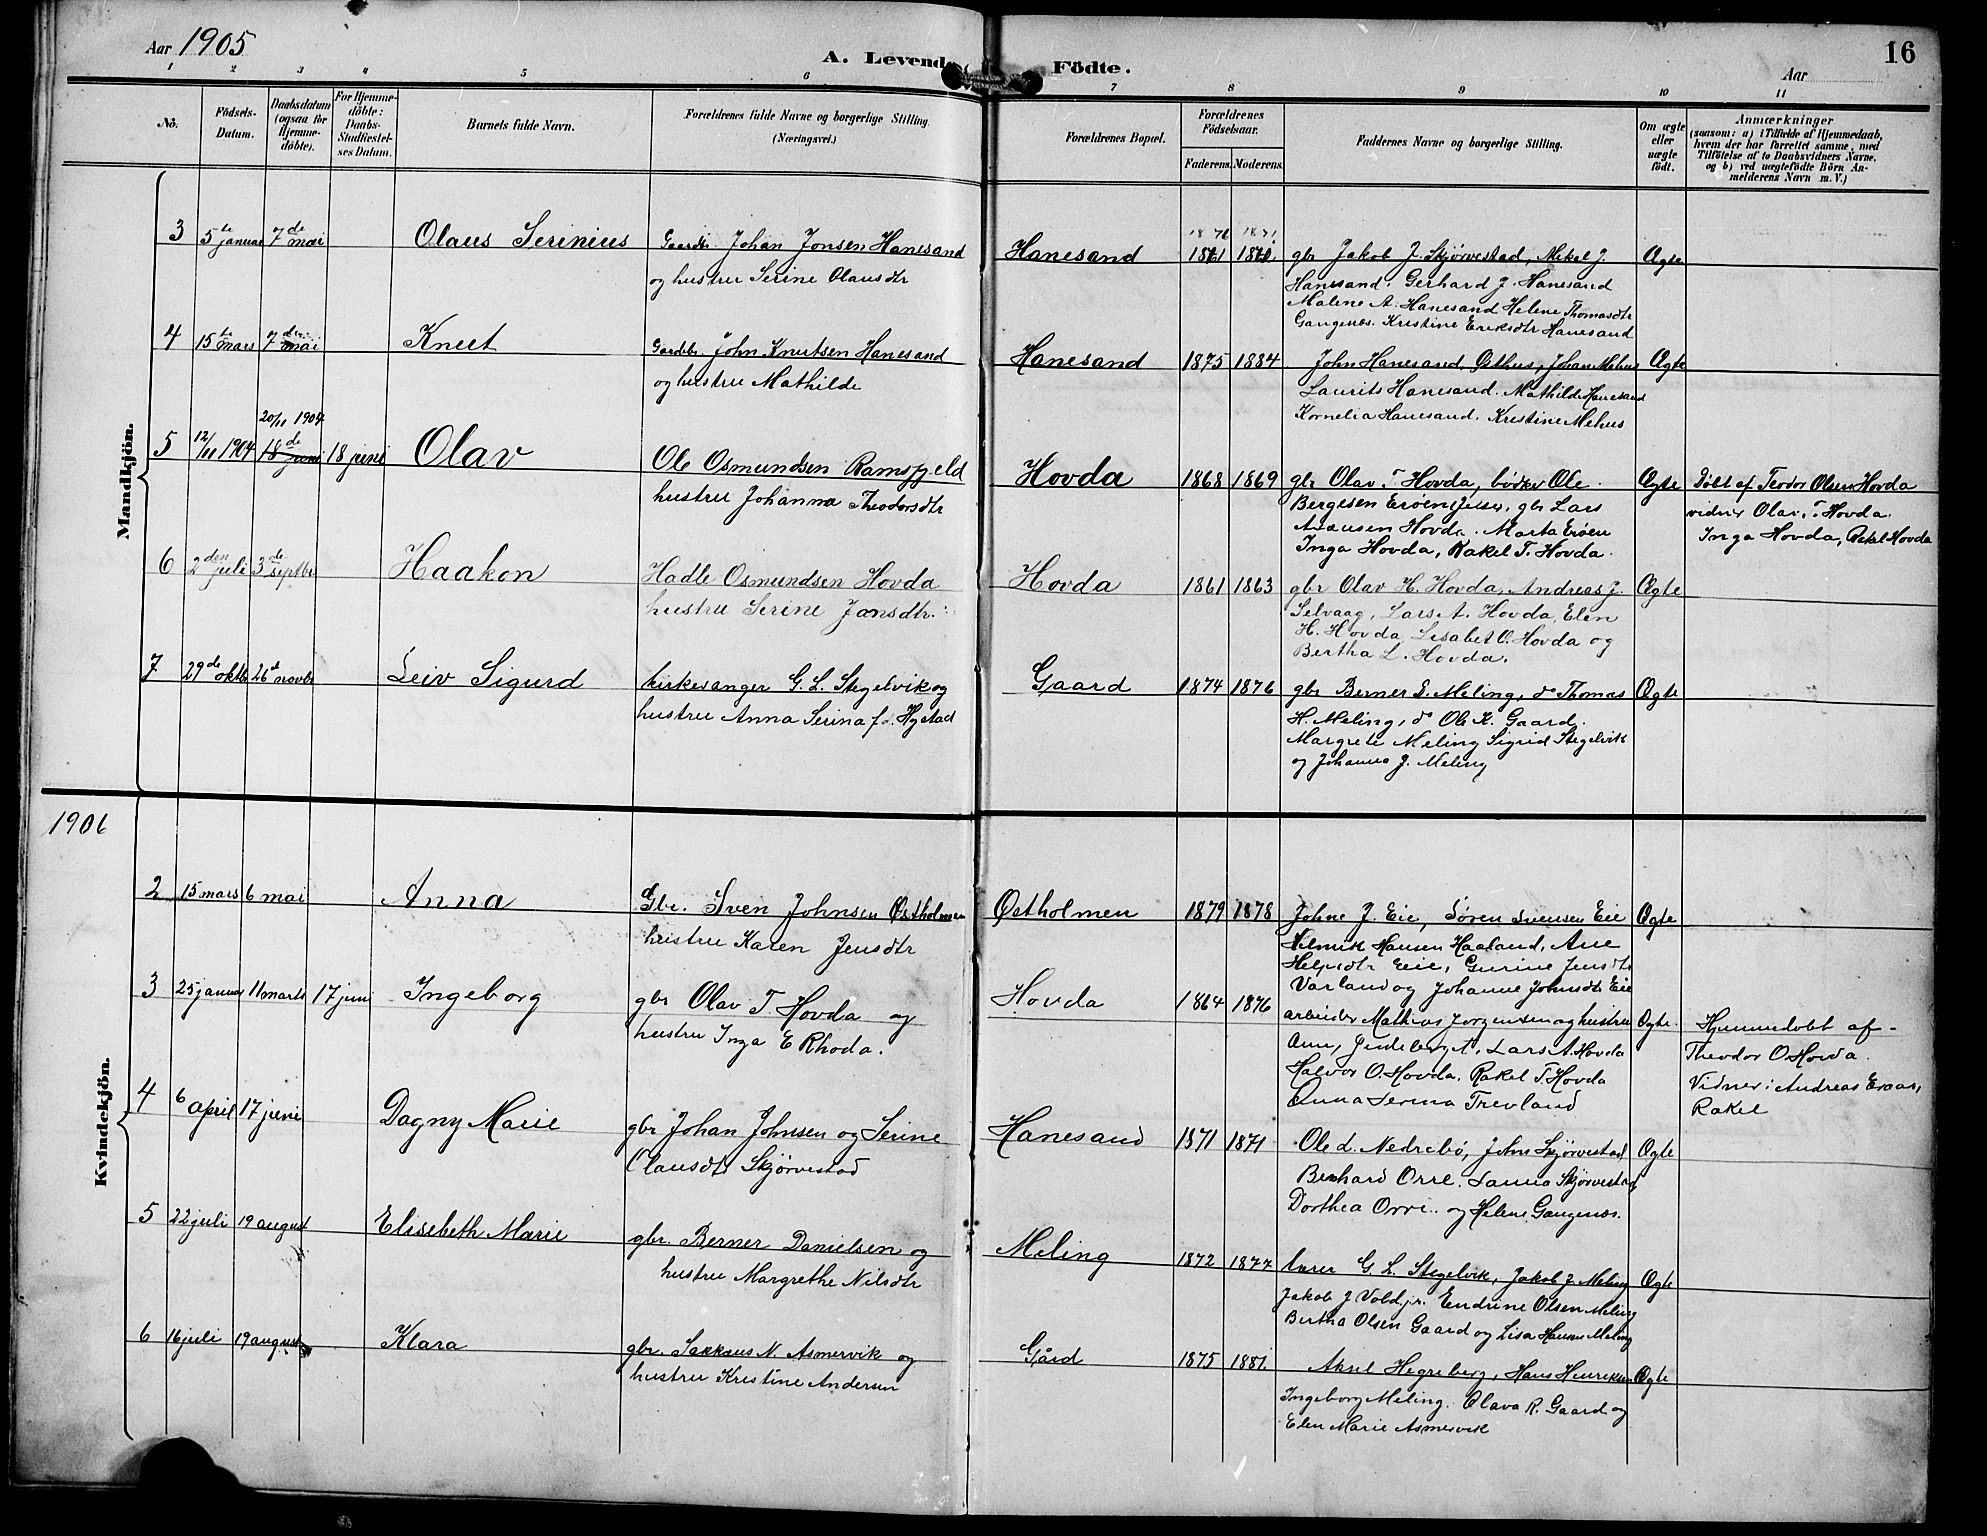 Aar 1905
A. Levende Födte.
Aar
16
1 2 3 4 5 6 7 8 9 10 11
No.
Födsels-Datum.
Daabsdatum (ogsaa for Hjemme-döbte).
For Hjemme-döbte: Daabs-Stadfæstel-ses Datum.
Barnets fulde Navn.
Forældrenes fulde Navne og borgerlige Stilling. (Næringsvei.)
Forældrenes Bopæl.
Forældrenes Födselsaar.
Faderens. Moderens.
Faddernes Navne og borgerlige Stilling.
Om ægte eller uægte födt.
Anmærkninger
(saasom: a) i Tilfælde af Hjemmedaab,
hvem der har forrettet samme, med
Tilföielse af to Daabsvidners Navne.
og b) ved uægtefödte Börn An-
melderens Navn m. V.)
Mandkjön.
1871 1871
3 5te januar 7de mai Olaus Serinius Gaardbr. Johan Jonsen Hanesand Hanesand 1861 1871 gbr Jakob J. Skjørvestad, Mikal J. Ægte
og hustru Serine Olausdtr Hanesand, Gerhard J. Hanesand
Malene A. Hanesand Helene Thomasdtr
Gangenæs. Kristine Eriksdtr Hanesand
4 15te mars 7de mai Knut Gardbr. John Knutsen Hanesand Hanesand 1875 1884 John Hanesand, Østhus, Johan Mehus Ægte
og hustru Mathilde Laurits Hanesand. Mathilde Hanesand
Kornelia Hanesand. Kristine Mehus
20/11 1904
5 12/11 1904 18de juni 18 juni Olav Ole Osmundsen Ramsfjeld Hovda 1868 1869 gbr Olav T Hovda, bødker Ole Ægte Døbt af Teodor Olsen Hovda
hustru Johanna Theodorsdtr Bergesen Erøen, gbr Lars vidner Olav T. Hovda.
Hovda. Marta Erøen Inga Hovda, Rakel Hovda
Inga Hovda, Rakel T. Hovda.
6 2den juli 3de septbr Haakon Hadle Osmundsen Hovda Hovda 1861 1863 gbr Olav H. Hovda, Andreas J. Ægte
hustru Serine Jansdtr. Selvaag, Lars A. Hovda, Elen
H. Hovda, Lisabet O. Hovda og
Bertha L. Hovda.
7 29de oktbr 26de novbr Leiv Sigurd kirkesanger G. L. Stegelvik og Gaard 1874 1876 gbr Berner D. Meling, do Thomas Ægte
hustru Anna Serina f. Hystad H. Meling, do Ole K. Gaard.
Margrete Meling Sigrid Stegelvik
og Johanna J. Meling
1906
Kvindekjön.
2 15 mars 6 mai Anna Gbr. Sven Johnsen Østholmen Østholmen 1879 1878 Johne J. Eie, Søren Svensen Eie Ægte
hustru Karen Jensdtr Hansen Haaland, Ane
Eie, Gurine Jensdtr
Varland og Johanne Johnsdtr Eie
3 25 januar 11 marts 17 juni Ingeborg gbr Olav T. Hovda og Hovda 1864 1876 arbeider Mathias Jørgensen og hustru Ægte Hjemmedøbt af
hustru Inga E Rhoda. Lars A. Hovda Theodor O Hovda.
Halvor O. Hovda, Rakel T. Hovda Vidner: Andreas
Anna Serina Trevland Rakel
4 6 april 17 juni Dagny Marie gbr Johan Johnsen og Serine Hanesand 1871 1871 Ole L. Nedrebø, John Skjørvestad Ægte
Olausdtr Skjørvestad Bernhard Orre. Skjørvestad
Dorthea Orre.. og Helene Gangenæs.
5 22 juli 19 august Elisebeth Marie gbr. Berner Danielsen og Meling 1872 1877 lærer G. L. Stegelvik, Jakob J. Meling Ægte
hustru Margrethe Nilsdtr Jakob J Vold jr. Endrine Olsen Meling
Bertha Olsen Gaard og Lisa Hansen Meling
6 16 juli 19 august Klara gbr. Sakkæus N. Asmervik og Gård 1875 1881. Aksel Hegreberg, Hans Henriksen Ægte
hustru Kristine Andersen Ingeborg Meling. Olava R. Gaard og
Elen Marie Asmervik